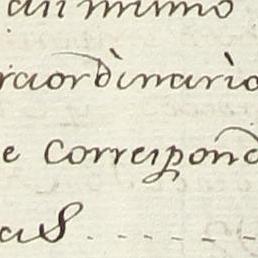 animo
raordinario
e correspond
as